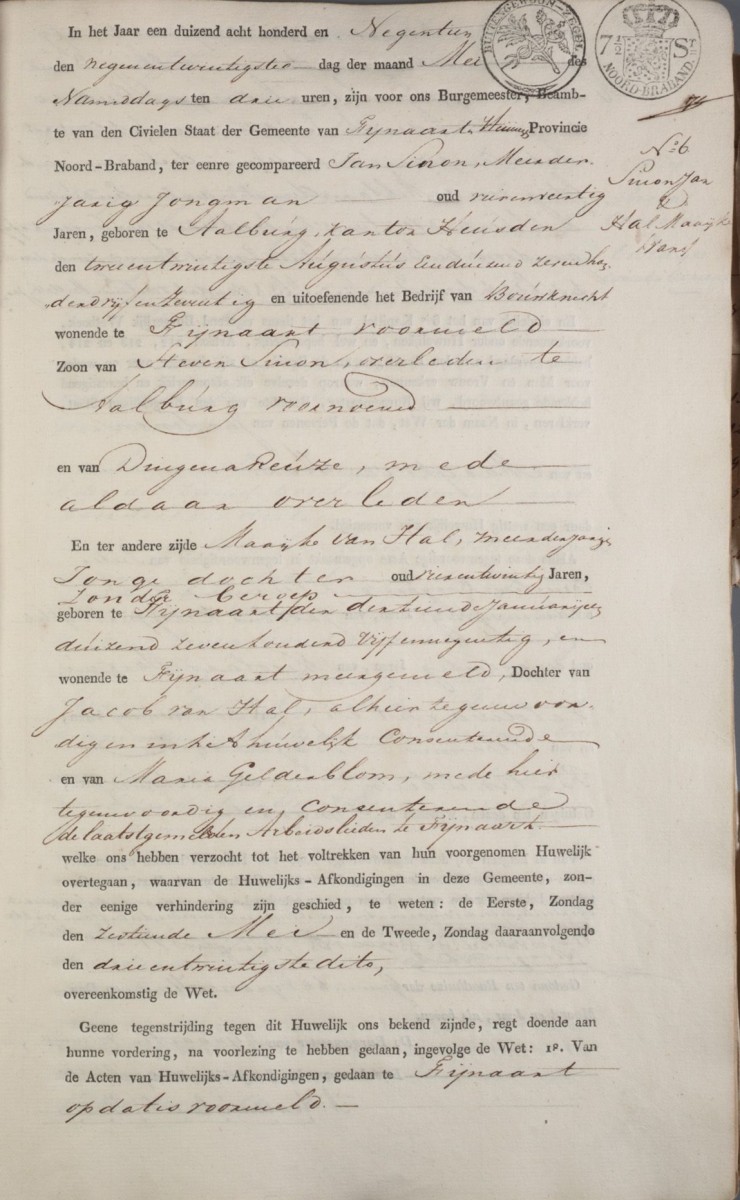 BUITENGEWOON-ZEGEL.
7 1/2 St
NOORD-BRABAND.
In het Jaar een duizend acht honderd en Negentien
den negenentwintigsten dag der maand Mei des
Namiddags ten drie uren, zijn voor ons Burgemeester, Beamb-
te van den Civielen Staat der Gemeente van Fijnaart, Provincie
Noord-Braband, ter eenre gecompareerd Jan Simon, Meerder
Jarig Jongman oud vierenveertig
Jaren, geboren te Aalburg, kanton Heusden
den tweentwintigste Augustus Eenduizend zevenhon
derdvijfenzeventig en uitoefenende het Bedrijf van Bouwknecht
wonende te Fijnaart voormeld
Zoon van Steven Simon, overleden te
Aalburg voornoemd
en van Dingena Reuze, mede
aldaar overleden
En ter andere zijde Maaijke van Hal, meerderjarige
Jonge dochter oud vierentwintig Jaren,
zonder beroep
geboren te Fijnaart den dertiende Januarij een
duizend zevenhonderd vijfennegentig, en
wonende te Fijnaart meergemeld, Dochter van
Jacob van Hal, alhier tegenwoor-
dig en in het huwelijk Consenteerende
en van Maria Gelderblom, mede hier
tegenwoordig en Consenteerende
de laatstgemelden Arbeidslieden te Fijnaart
welke ons hebben verzocht tot het voltrekken van hun voorgenomen Huwelijk
overtegaan, waarvan de Huwelijks-Afkondigingen in deze Gemeente, zon-
der eenige verhindering zijn geschied, te weten: de Eerste, Zondag
den zestiende Mei en de Tweede, Zondag daaraanvolgende
den drieentwintigste dito,
overeenkomstig de Wet.
Geene tegenstrijding tegen dit Huwelijk ons bekend zijnde, regt doende aan
hunne vordering, na voorlezing te hebben gedaan, ingevolge de Wet: 1º. Van
de Acten van Huwelijks-Afkondigingen, gedaan te Fijnaart
op datis voormeld.
No 6
Simon Jan
&
Hal Maaijke
van